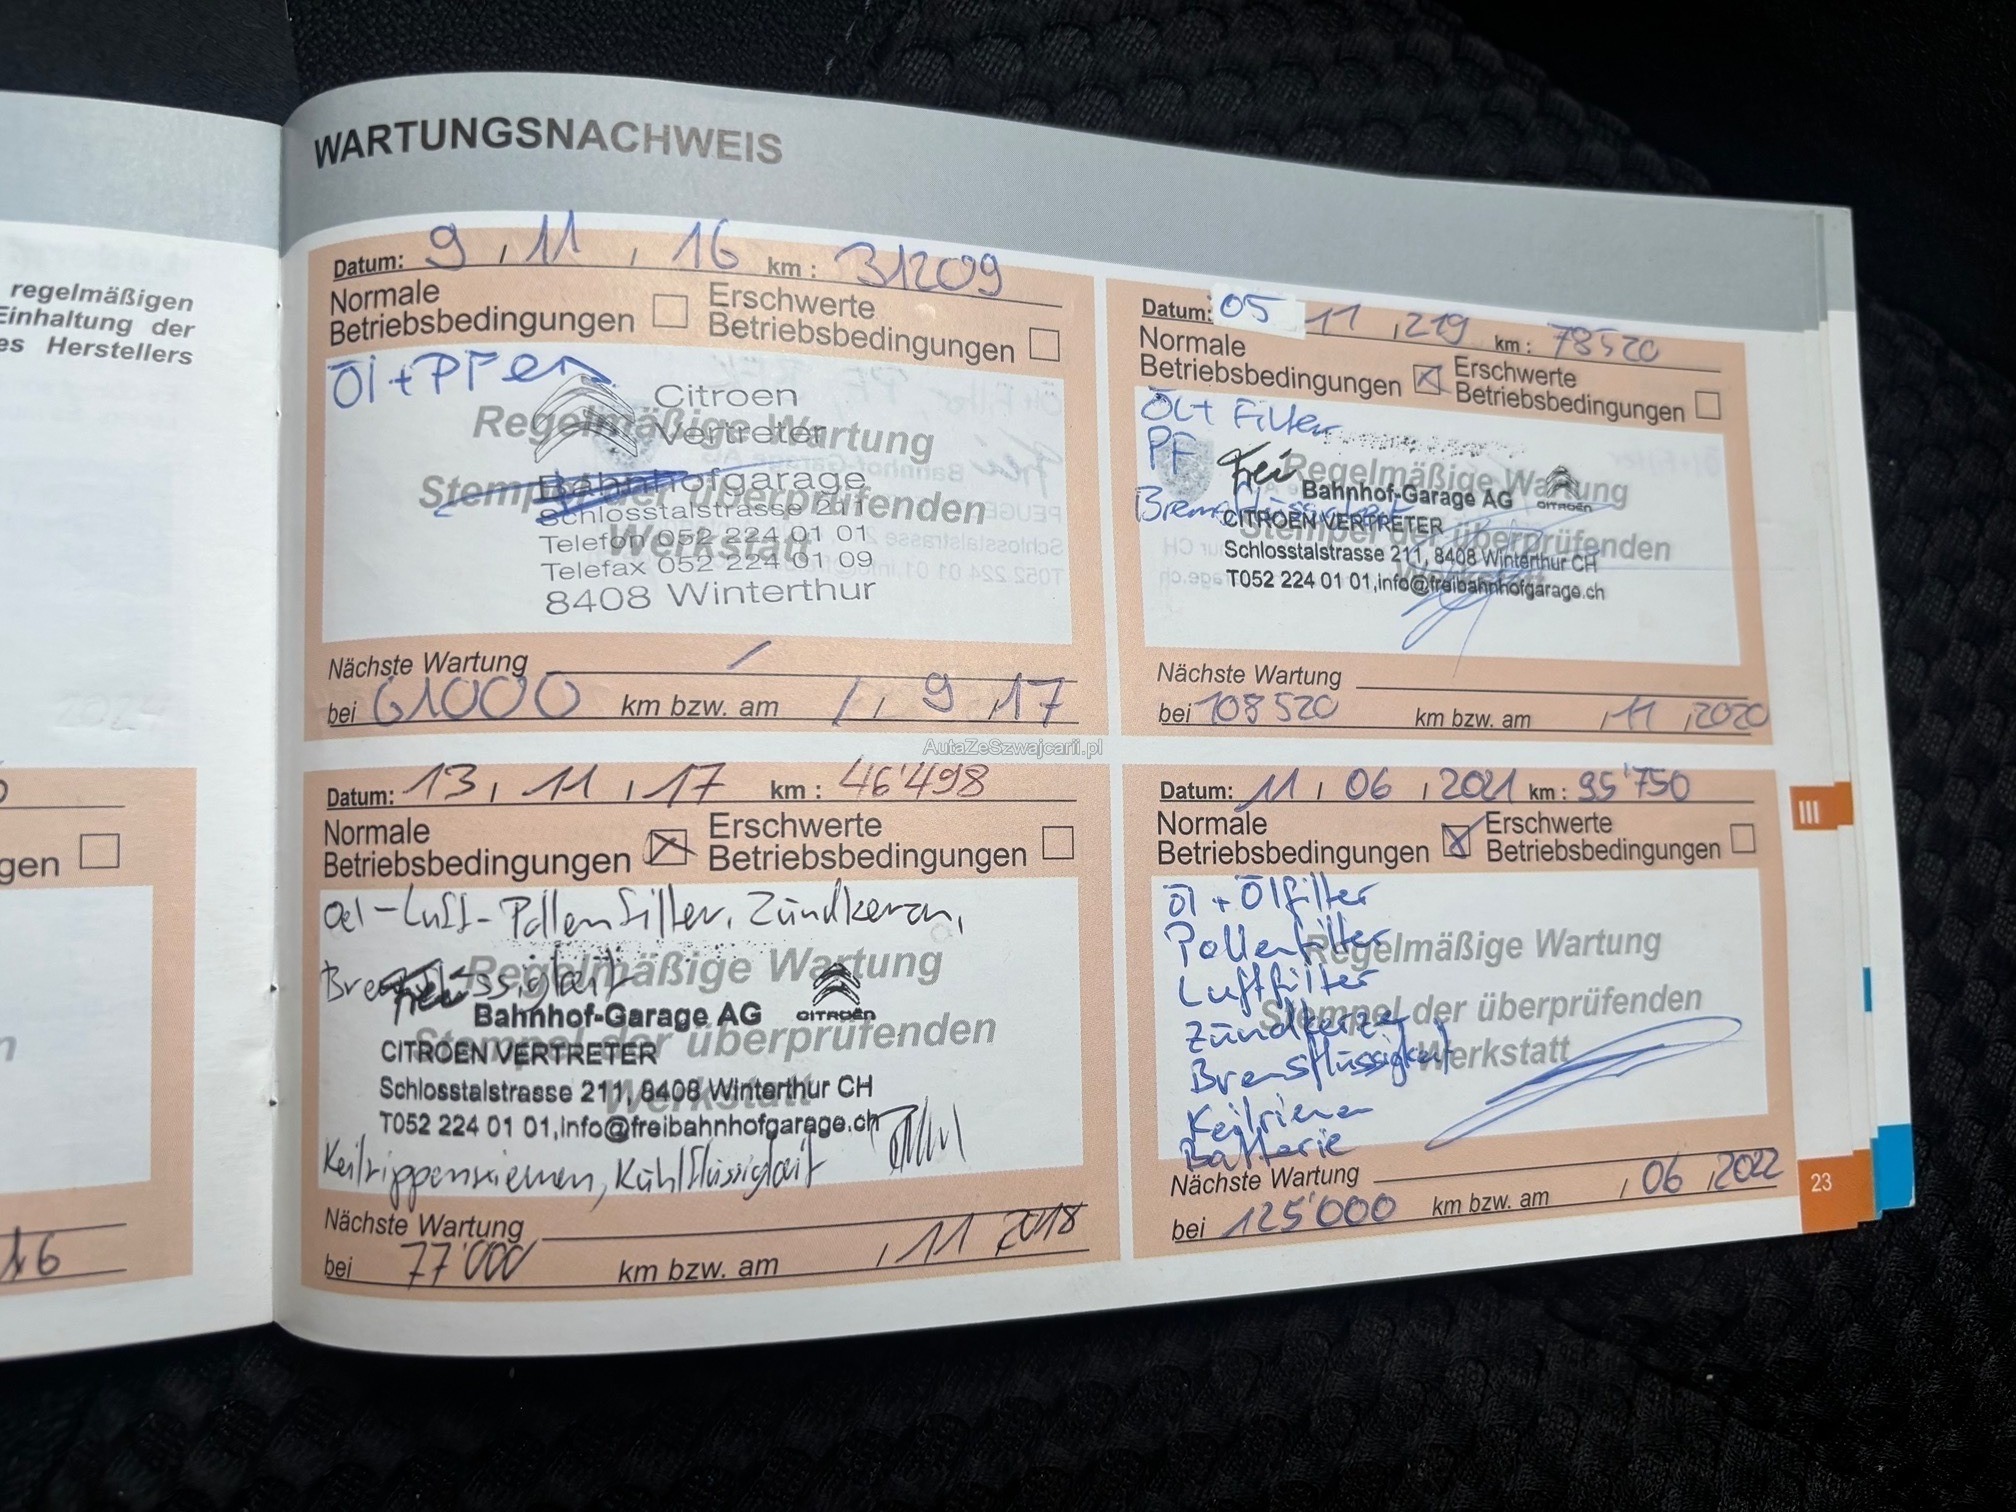 WARTUNGSNACHWEIS
regelmäßigen
Einhaltung der
es Herstellers
gen
16
Datum: 9 , 11 , 16 km : 31209
Normale Betriebsbedingungen
Erschwerte Betriebsbedingungen
Öl +
Citroen
Vertreter
Bahnhofgarage
Schlosstalstrasse 211
Telefon 052 224 01 01
Telefax 052 224 01 09
8408 Winterthur
Regelmäßige Wartung
Stempel der überprüfenden
Werkstatt
Nächste Wartung
bei 61000 km bzw. am / , 9 , 17
Datum: 13 , 11 , 17 km : 46'498
Normale Betriebsbedingungen
Erschwerte Betriebsbedingungen
Oel-Luft-Pollenfilter, Zündkerzen,
Bremsflüssigkeit
Regelmäßige Wartung
Frei
Bahnhof-Garage AG CITROËN
Stempel der überprüfenden
CITROEN VERTRETER
Schlosstalstrasse 211, 8408 Winterthur CH
Werkstatt
T052 224 01 01,info@freibahnhofgarage.ch
Keilrippenriemen, Kühlflüssigkeit
Nächste Wartung
bei 77'000 km bzw. am , 11 2018
Datum: 05 11 , 219 km : 78520
Normale Betriebsbedingungen
Erschwerte Betriebsbedingungen
Öl + Filter
PF
Bremsflüssigkeit
Regelmäßige Wartung
Frei
Bahnhof-Garage AG CITROËN
CITROEN VERTRETER
Stempel der überprüfenden
Schlosstalstrasse 211, 8408 Winterthur CH
Werkstatt
T052 224 01 01,info@freibahnhofgarage.ch
Nächste Wartung
bei 108520 km bzw. am , 11 , 2020
AutaZeSzwajcarii.pl
Datum: 11 , 06 , 2021 km : 95'750
Normale Betriebsbedingungen
Erschwerte Betriebsbedingungen
Öl + Ölfilter
Pollenfilter
Luftfilter
Zündkerze
Bremsflüssigkeit
Keilriemen
Batterie
Regelmäßige Wartung
Stempel der überprüfenden
Werkstatt
Nächste Wartung
bei 125'000 km bzw. am , 06 , 2022
III
23